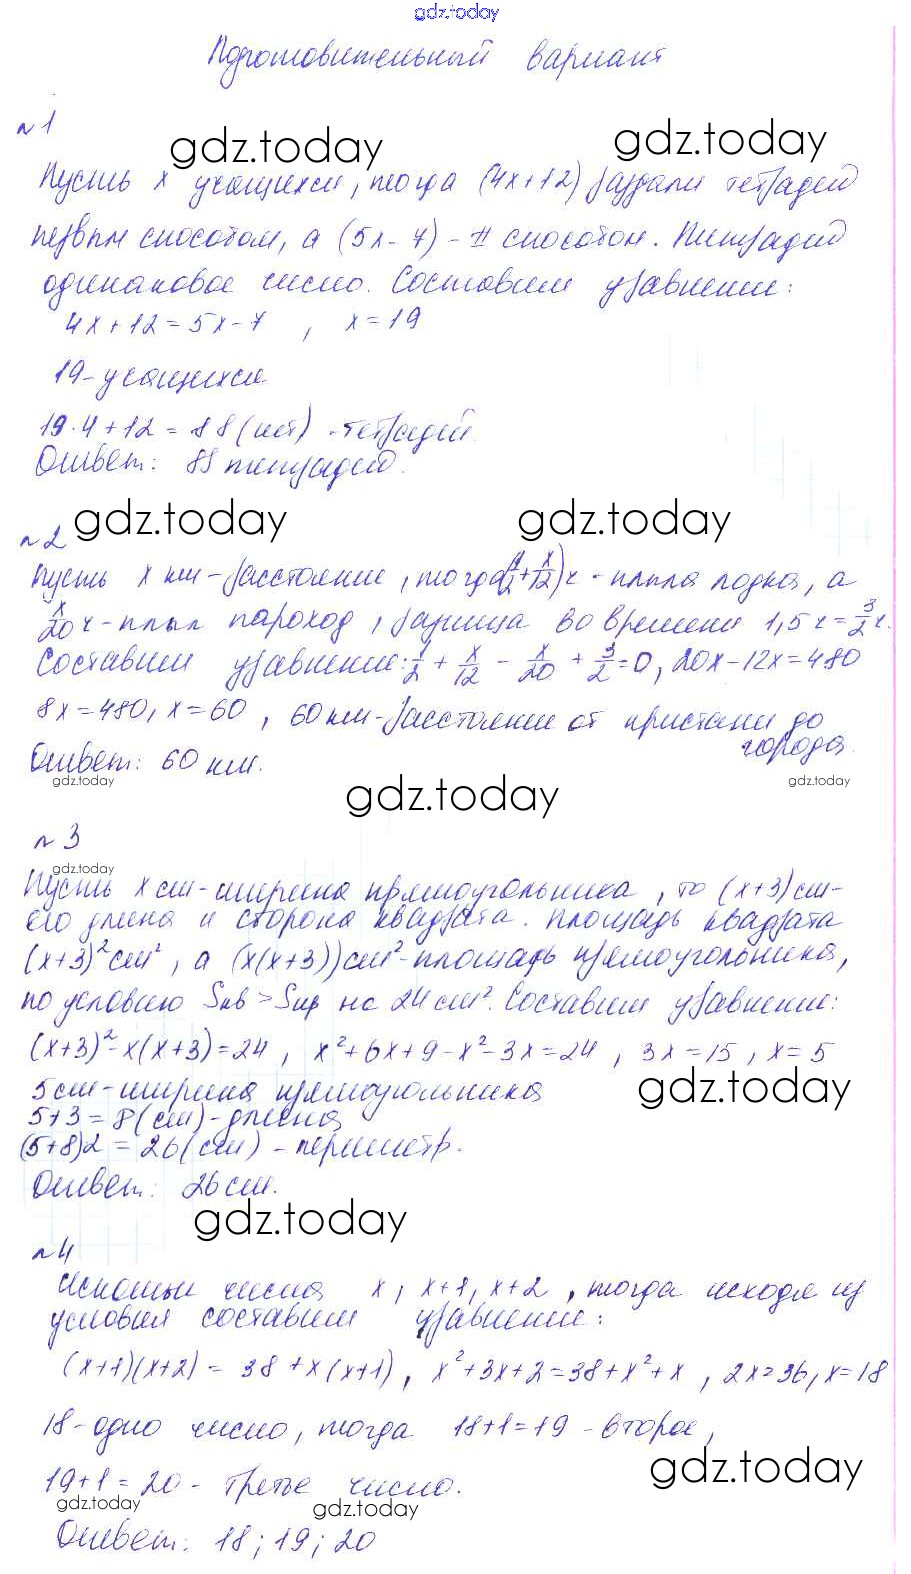 gdz.today
Подготовительный вариант
№1
gdz.today gdz.today
Пусть x учащихся, тогда (4x+12) раздали тетрадей
первым способом, а (5x-7) - II способом. Тетрадей
одинаковое число. Составим уравнение:
4x+12=5x-7 , x=19
19-учащихся
19·4+12=88(шт) -тетрадей.
Ответ: 88 тетрадей.
gdz.today gdz.today
№2
Пусть x км-расстояние, тогда (1/2+x/12)ч - плыла лодка, а
x/20 ч-плыл пароход, разница во времени 1,5ч=3/2ч.
Составим уравнение: 1/2 + x/12 - x/20 + 3/2=0, 20x-12x=480
8x=480, x=60 , 60км-расстояние от пристани до
города.
Ответ: 60 км.
gdz.today gdz.today gdz.today
№3
gdz.today
Пусть x см-ширина прямоугольника, то (x+3)см-
его длина и сторона квадрата. Площадь квадрата
(x+3)²см², а (x(x+3))см²-площадь прямоугольника,
по условию Sкв>Sпр на 24см². Составим уравнение:
(x+3)²-x(x+3)=24, x²+6x+9-x²-3x=24 , 3x=15, x=5
gdz.today
5см-ширина прямоугольника
5+3=8(см)-длина
(5+8)2=26(см) -периметр.
Ответ: 26см.
gdz.today
№4
Искомые числа x, x+1, x+2, тогда исходя из
условия составим уравнение:
(x+1)(x+2)=38+x(x+1), x²+3x+2=38+x²+x , 2x=36, x=18
18-одно число, тогда 18+1=19 -второе,
gdz.today
19+1=20- третье число.
gdz.today gdz.today
Ответ: 18; 19; 20